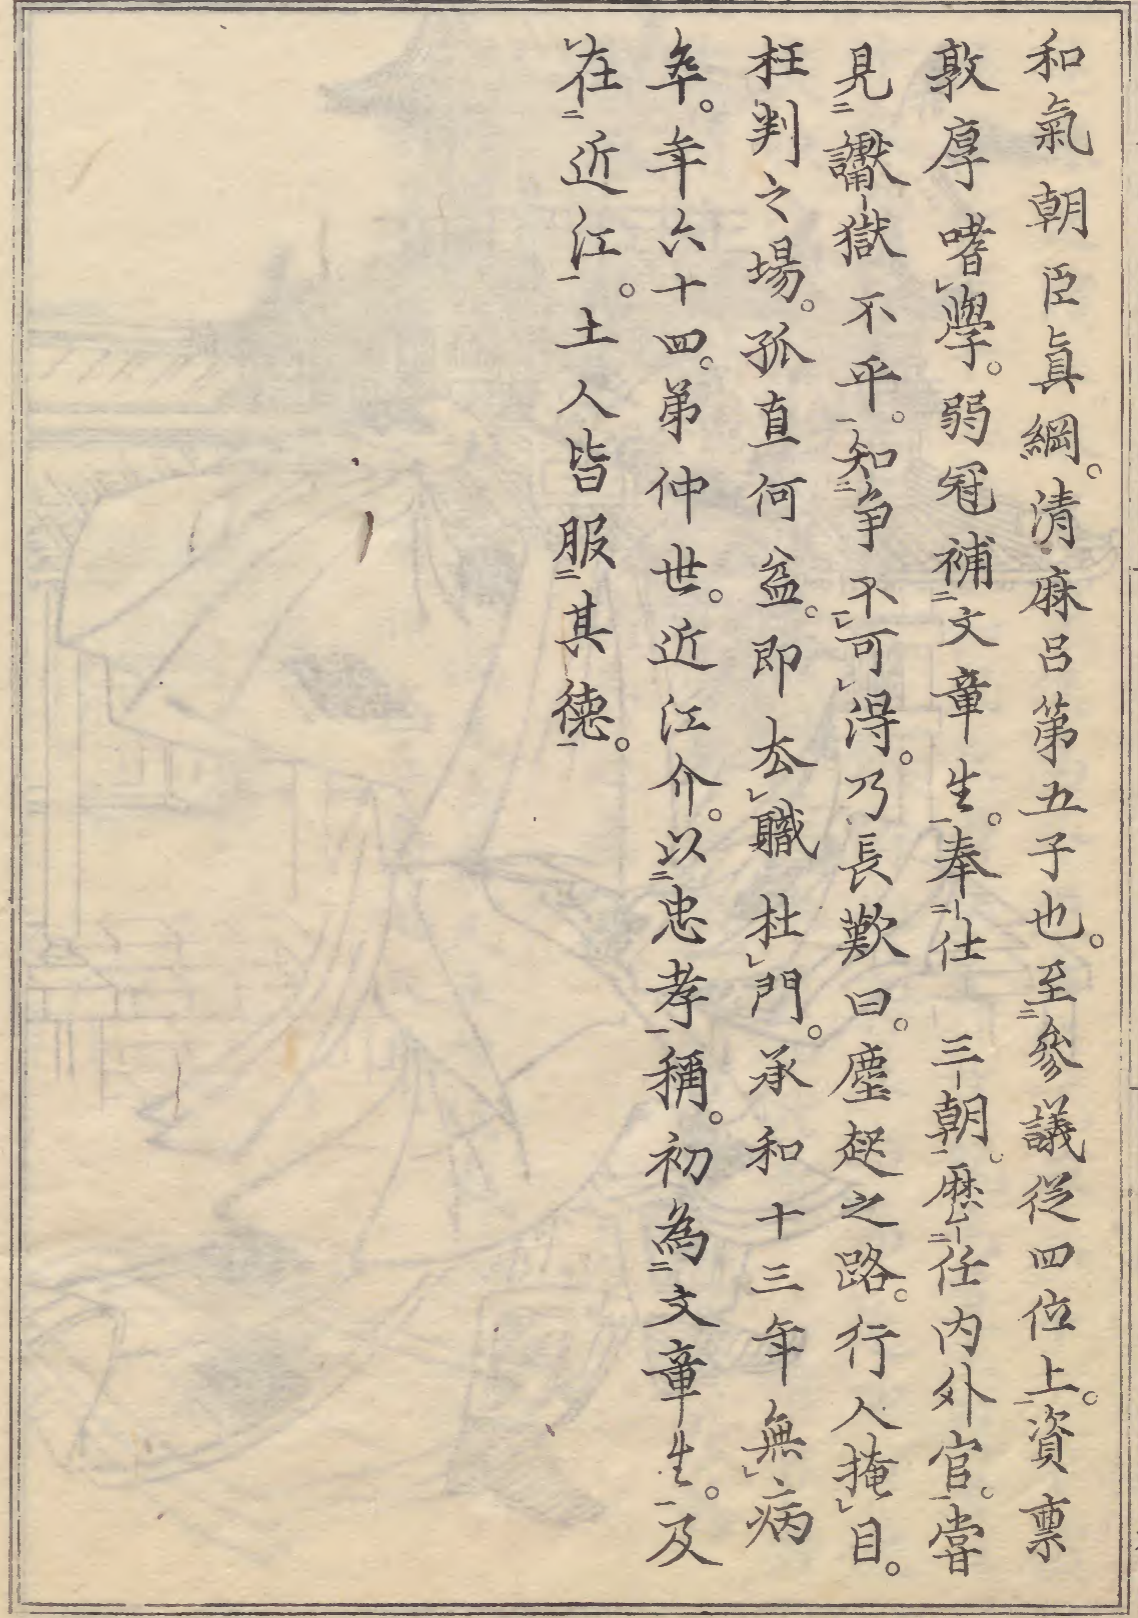 和氣朝臣眞綱。清麻呂第五子也。至參議從四位上。資稟
敦厚嗜學。弱冠補文章生。奉仕　三朝。歷任内外官。嘗
見讞獄不平。知爭不可得。乃長歎曰。塵起之路。行人掩目。
枉判之場。孤直何益。即去職杜門。承和十三年無病
卒。年六十四。弟仲世。近江介。以忠孝稱。初為文章生。及
在近江。土人皆服其德。